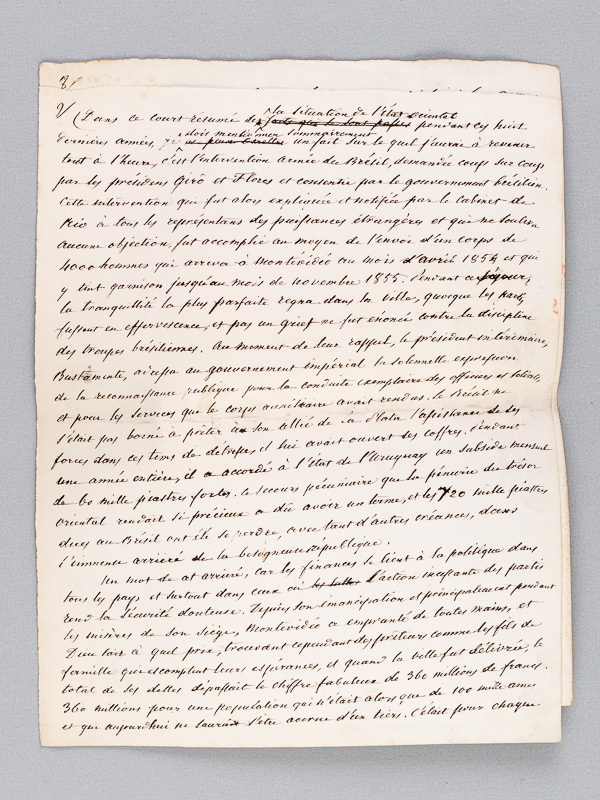 8/
la situation de l'état oriental
V/ (Dans ce court résumé des faits qui se sont passés pendant ces huit
dois mentionner sommairement
dernières années, je ne peux un fait sur le quel j'aurai à revenir
tout à l'heure, c'est l'intervention armée du Brésil, demandée coup sur coup
par les présidens Giró et Flores et consentie par le gouvernement brésilien.
Cette intervention qui fut alors expliquée et notifiée par le cabinet de
Rio à tous les représentans des puissances étrangères et qui ne souleva
aucune objection, fut accomplie au moyen de l'envoi d'un corps de
4000 hommes qui arriva à Montévidéo au mois d'avril 1854 et qui
y tint garnison jusqu'au mois de novembre 1855. Pendant ce séjour,
la tranquillité la plus parfaite regna dans la ville, quoique les partis
fussent en effervescence, et pas un grief ne fut énoncé contre la discipline
des troupes brésiliennes. Au moment de leur rappel, le président intérimaire,
Bustamente, adressa au gouvernement impérial la solennelle expression
de la reconnaissance publique pour la conduite exemplaire des officiers et soldats,
et pour les services que le corps auxiliaire avait rendus. Le Brésil ne
s'était pas borné à prêter à son allié de la Plata l'assistance de ses
forces dans ces tems de détresse, il lui avait ouvert ses coffres. Pendant
une année entière, il a accordé à l'état de l'Uruguay un subside mensuel
de 60 mille piastres fortes. Le secours pécuniaire que la pénurie du trésor
oriental rendait si précieux a dû avoir un terme, et les 720 mille piastres
dues au Brésil ont été se perdre, avec tant d'autres créances, dans
l'immense arriéré de la besogneuse république.
Un mot de cet arriéré, car les finances se lient à la politique dans
tous les pays et surtout dans ceux où les luttes l'action incessante des partis
rend la sécurité douteuse. Depuis son émancipation et principalement pendant
les misères de son siège, Montévidéo a emprunté de toutes mains, et
Dieu sait à quel prix, trouvant cependant des prêteurs comme les fils de
famille qui escomptent leurs espérances, et quand la ville fut délivrée, le
total de ses dettes dépassait le chiffre fabuleux de 360 millions de francs.
360 millions pour une population qui n'était alors que de 100 mille ames
et que aujourd'hui ne saurait s'être accrue d'un tiers. C'était pour chaque